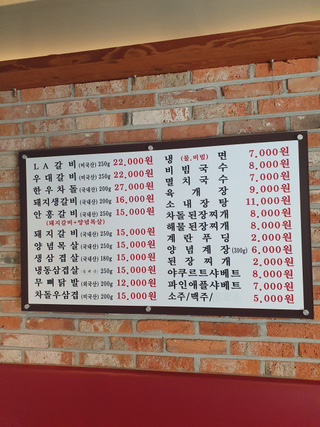 LA갈비 (미국산) 250g 22,000원
우대갈비 (미국산) 250g 22,000원
한우차돌 (국내산) 200g 27,000원
돼지생갈비 (국내산) 200g 16,000원
안흥갈비 (국내산) 250g 15,000원
(돼지갈비+양념목살)
돼지갈비 (국내산) 250g 15,000원
양념목살 (국내산) 250g 15,000원
생삼겹살 (국내산) 180g 15,000원
냉동삼겹살 200g 15,000원
무뼈닭발 (외국산) 200g 12,000원
차돌우삼겹 (외국산) 200g 15,000원
냉면 (물,비빔) 7,000원
비빔국수 8,000원
멸치국수 7,000원
육개장 9,000원
소내장탕 11,000원
차돌된장찌개 8,000원
해물된장찌개 8,000원
계란푸딩 2,000원
양념게장 (300g) 6,000원
된장찌개 2,000원
야쿠르트샤베트 8,000원
파인애플샤베트 7,000원
소주/맥주/ 5,000원